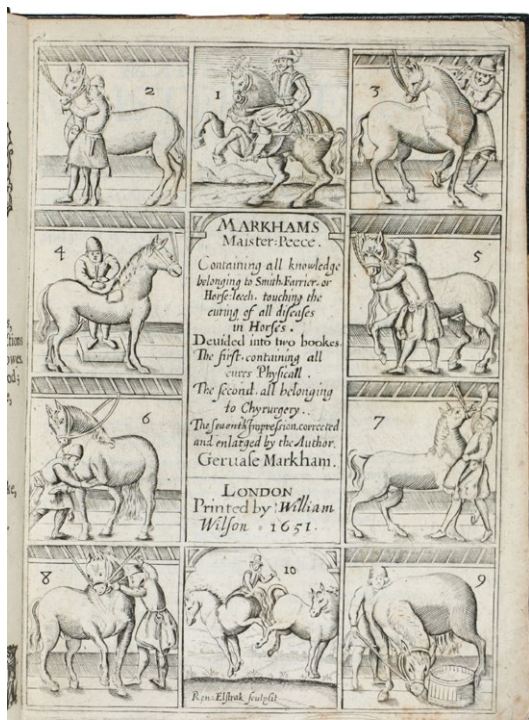 2
1
3
MARKHAMS
Maister=Peece.
4
Containing all knowledge
belonging to Smith, Farrier, or
Horse=leech, touching the
curing of all diseases
in Horses.
5
Deuided into two bookes.
The first, containing all
cures Physicall.
The second, all belonging
to Chyrurgery.
6
The seventh Impression, corrected
and enlarged by the Author,
Geruase Markham.
7
LONDON
Printed by William
Wilson. 1651.
8
10
9
Ren: Elstrak sculpsit